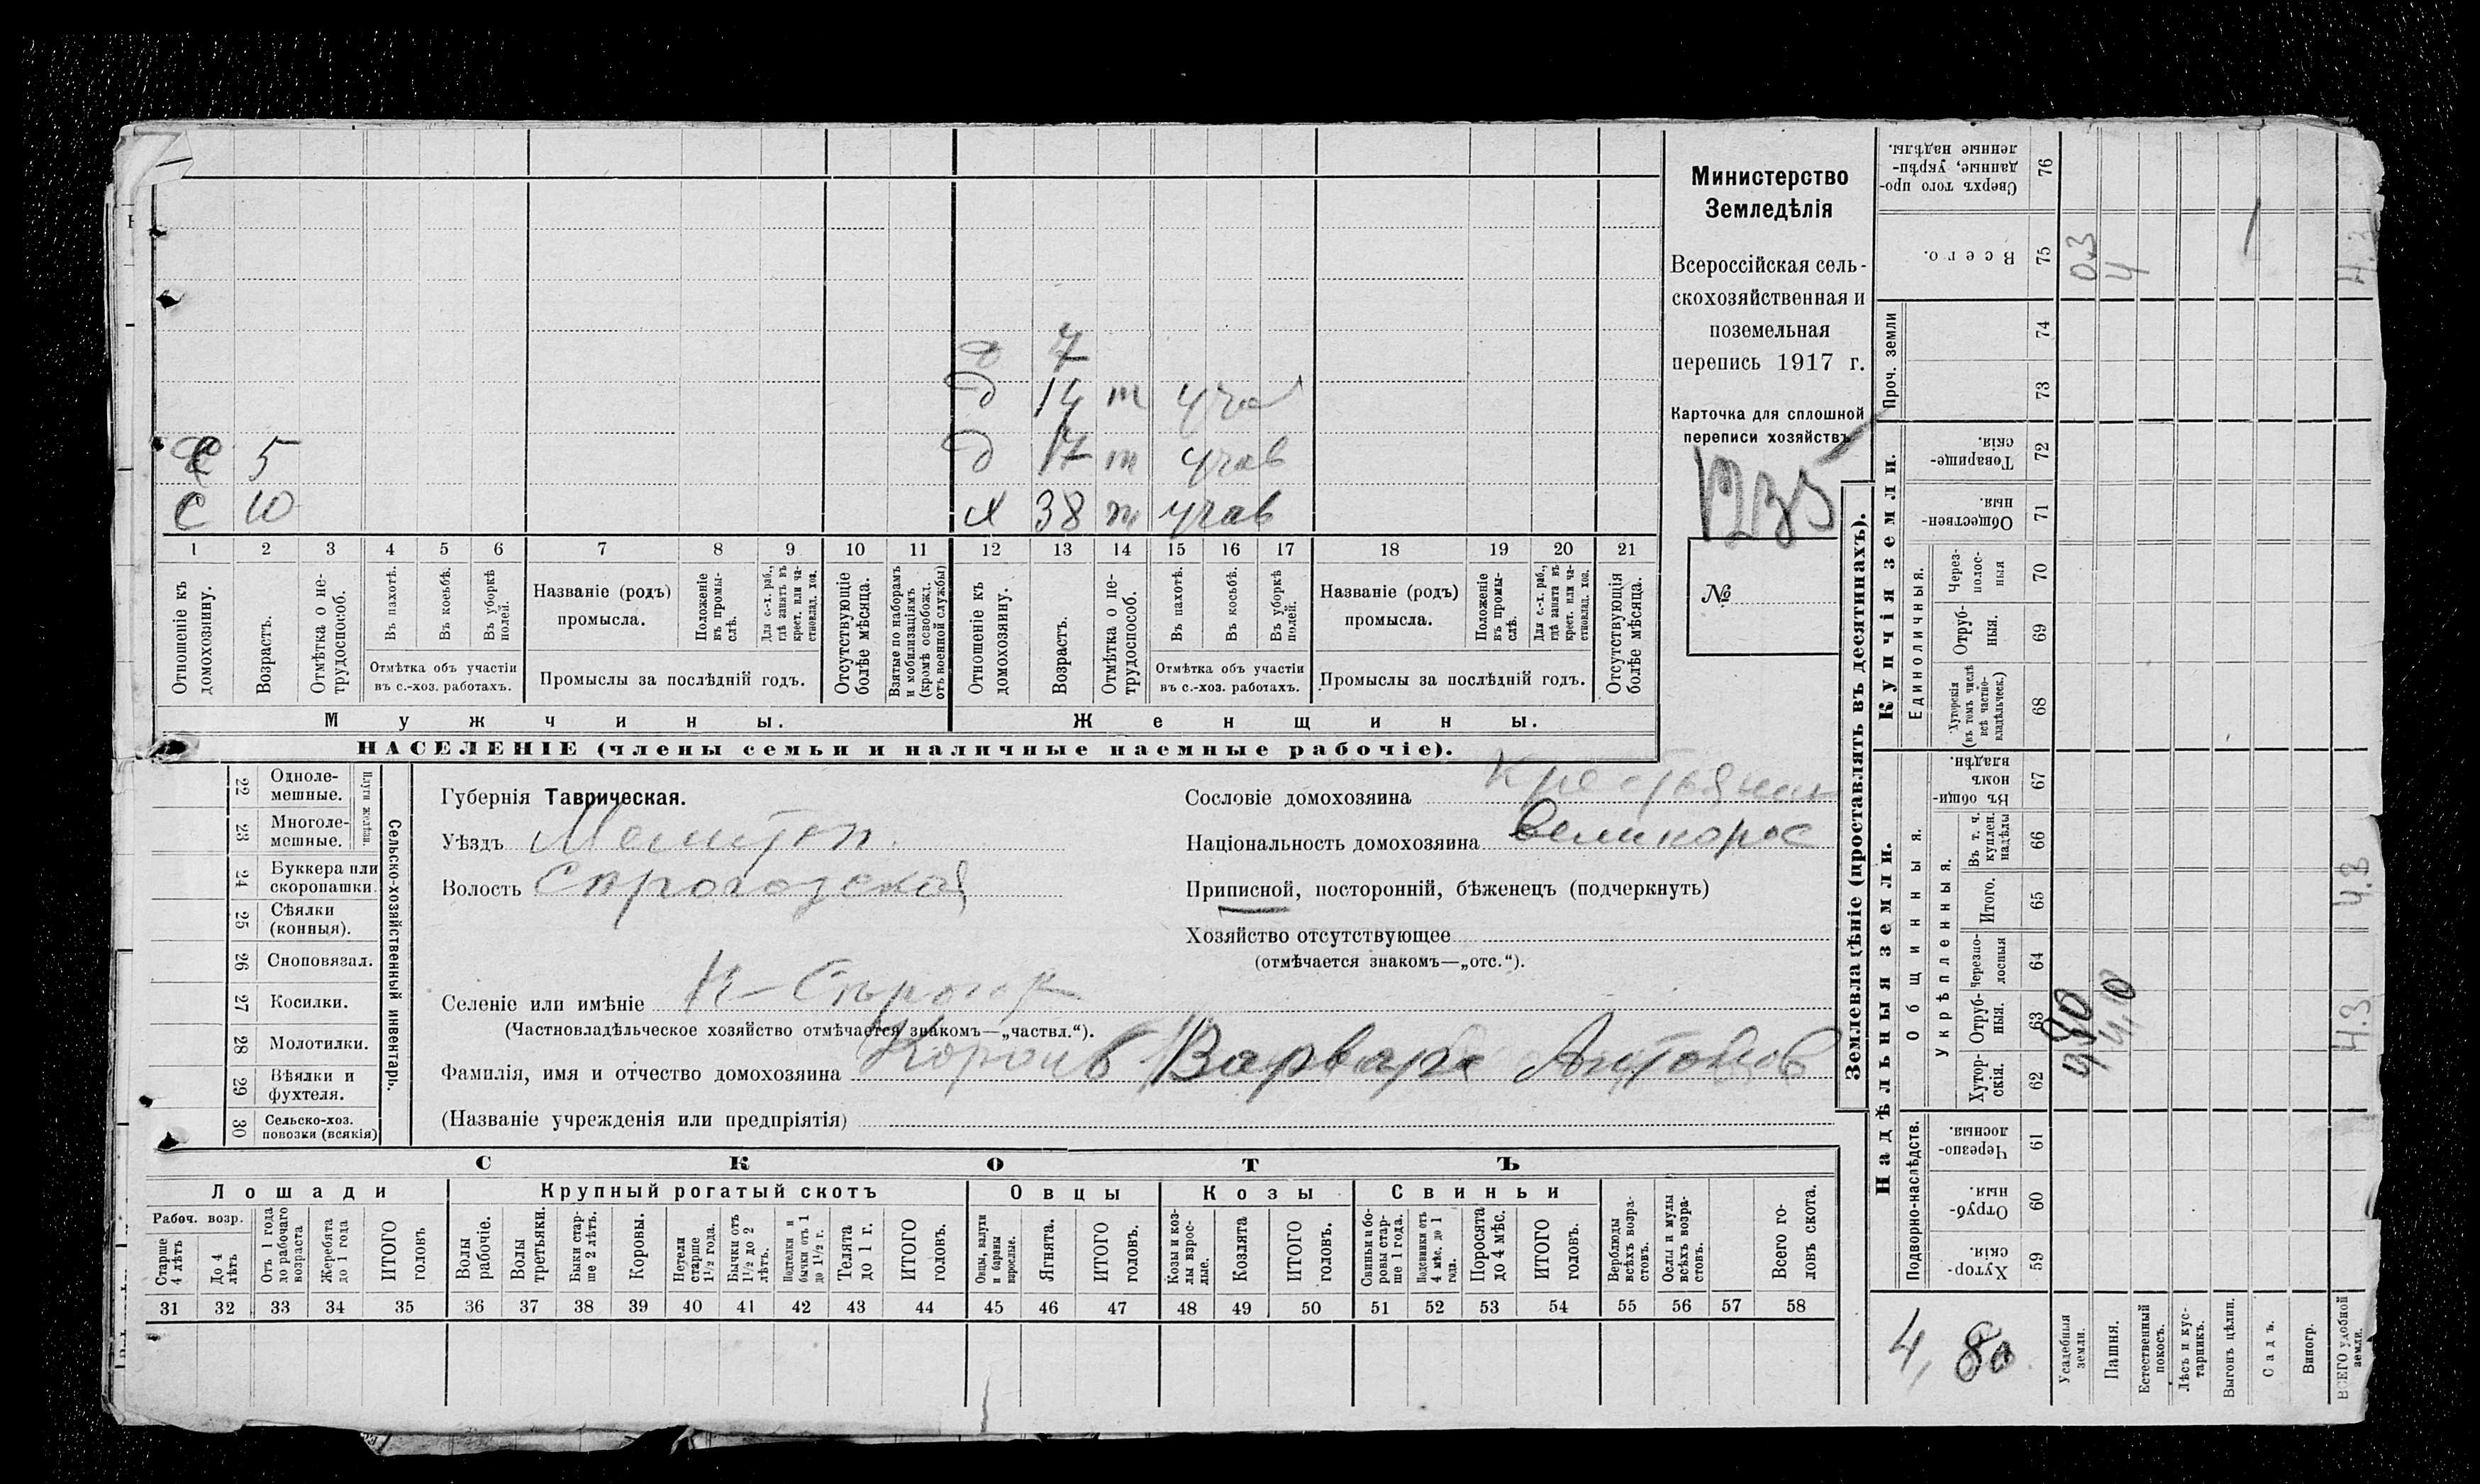 Министерство
Земледѣлія
Всероссійская сель-
скохозяйственная и
поземельная
перепись 1917 г.
Карточка для сплошной
переписи хозяйствъ
№
д 7
д 14 т
д 17 т учав
С 5
С 10
Х 38 т учав
1 2 3 4 5 6 7 8 9 10 11 12 13 14 15 16 17 18 19 20 21
Отношеніе къ домохозяину.
Возрастъ.
Отмѣтка о не-
трудоспособ.
Въ пахотѣ.
Въ косьбѣ.
Въ уборкѣ
полей.
Отмѣтка объ участіи
въ с.-хоз. работахъ.
Названіе (родъ)
промысла.
Положеніе
въ промы-
слѣ.
Для с.-х. раб.,
гдѣ занятъ въ
крест. или ча-
стновлад. хоз.
Промыслы за послѣдній годъ.
Отсутствующіе
болѣе мѣсяца.
Взятые по наборамъ
и мобилизаціямъ
(кромѣ освобожд.
отъ военной службы)
Отношеніе къ
домохозяину.
Возрастъ.
Отмѣтка о не-
трудоспособ.
Въ пахотѣ.
Въ косьбѣ.
Въ уборкѣ
полей.
Отмѣтка объ участіи
въ с.-хоз. работахъ.
Названіе (родъ)
промысла.
Положеніе
въ промы-
слѣ.
Для с.-х. раб.,
гдѣ занята въ
крест. или ча-
стновлад. хоз.
Промыслы за послѣдній годъ.
Отсутствующія
болѣе мѣсяца.
Мужчины.
Женщины.
НАСЕЛЕНІЕ (члены семьи и наличные наемные рабочіе).
Сельско-хозяйственный инвентарь.
22 Одноле-
мешные.
23 Многоле-
мешные.
24 Буккера или
скоропашки.
25 Сѣялки
(конныя).
26 Сноповязал.
27 Косилки.
28 Молотилки.
29 Вѣялки и
фухтеля.
30 Сельско-хоз.
повозки (всякія)
Губернія Таврическая.
Уѣздъ Мелитоп.
Волость
Сословіе домохозяина Крестьянин
Національность домохозяина Великорос
Приписной, посторонній, бѣженецъ (подчеркнуть)
Хозяйство отсутствующее
(отмѣчается знакомъ—„отс.“).
Селеніе или имѣніе
(Частновладѣльческое хозяйство отмѣчается знакомъ—„частвл.“).
Фамилія, имя и отчество домохозяина Варвара Антонов
(Названіе учрежденія или предпріятія)
СКОТЪ
Лошади
Крупный рогатый скотъ
Овцы
Козы
Свиньи
Рабоч. возр.
Старше
4 лѣтъ
До 4
лѣтъ
Отъ 1 года
до рабочаго
возраста
Жеребята
до 1 года
ИТОГО
головъ
Волы
рабочіе.
Волы
третьяки.
Быки стар-
ше 2 лѣтъ.
Коровы.
Нетели
старше
1½ года.
Бычки отъ
1½ до 2
лѣтъ.
Подтелки и
бычки отъ 1
до 1½ г.
Телята
до 1 г.
ИТОГО
головъ.
Овцы, валухи
и бараны
взрослые.
Ягнята.
ИТОГО
головъ.
Козы и коз-
лы взрос-
лые.
Козлята
ИТОГО
головъ.
Свиньи и бо-
ровы стар-
ше 1 года.
Подсвинки отъ
4 мѣс. до 1
года.
Поросята
до 4 мѣс.
ИТОГО
головъ.
Верблюды
всѣхъ возра-
стовъ.
Ослы и мулы
всѣхъ возра-
стовъ.
Всего го-
ловъ скота.
31 32 33 34 35 36 37 38 39 40 41 42 43 44 45 46 47 48 49 50 51 52 53 54 55 56 57 58
Землевладѣніе (проставлять въ десятинахъ).
Надѣльныя земли.
Купчія земли.
Проч. земли
Сверхъ того про-
данные, укрѣп-
ленные надѣлы.
76
Всего.
75
74
73
Товарище-
скія.
72
Обществен-
ныя.
71
Единоличныя.
Через-
полос-
ныя
70
Отруб-
ныя.
69
Хуторскія
(въ томъ числѣ
всѣ частно-
владѣльческ.)
68
Общинныя.
Въ общи-
номъ
владѣн.
67
Укрѣпленныя.
Въ т. ч.
куплен.
надѣлы
66
Итого.
65
Черезпо-
лосныя
64
Отруб-
ныя.
63
Хутор-
скія.
62
Подворно-наслѣдств.
Черезпо-
лосныя.
61
Отруб-
ныя.
60
Хутор-
скія.
59
Усадебныя
земли.
Пашня.
Естественный
покосъ.
Лѣсъ и кус-
тарникъ.
Выгонъ цѣлин.
Садъ.
Виногр.
ВСЕГО удобной
земли.
0.3
4
4.3
4.3
4.3
4,80